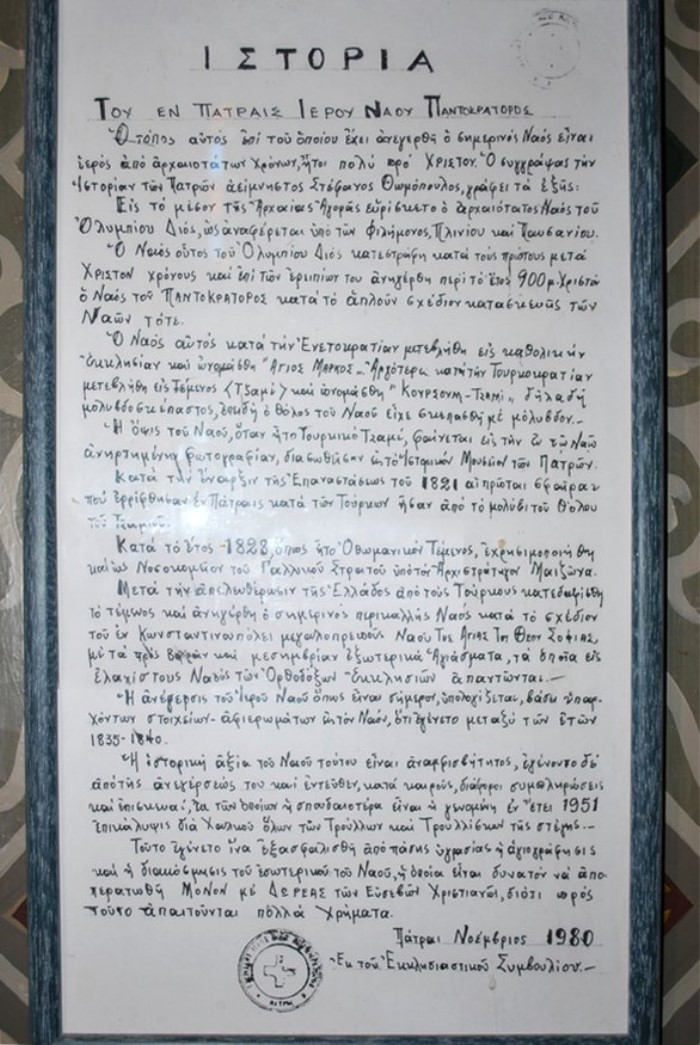 ΙΣΤΟΡΙΑ
ΤΟΥ ΕΝ ΠΑΤΡΑΙΣ ΙΕΡΟΥ ΝΑΟΥ ΠΑΝΤΟΚΡΑΤΟΡΟΣ
Ὁ τόπος αὐτός ἐπί τοῦ ὁποίου ἔχει ἀνεγερθῆ ὁ σημερινός Ναός εἶναι
ἱερός ἀπό ἀρχαιοτάτων χρόνων, ἤτοι πολύ πρό ΧΡΙΣΤΟΥ. Ὁ συγγράψας τήν
Ἱστορίαν τῶν Πατρῶν ἀείμνηστος Στέφανος Θωμόπουλος, γράφει τά ἑξῆς:
Εἰς τό μέσον τῆς Ἀρχαίας Ἀγορᾶς εὑρίσκετο ὁ ἀρχαιότατος Ναός τοῦ
Ὀλυμπίου Διός, ὡς ἀναφέρεται ὑπό τῶν Φιλήμονος, Πλινίου καί Παυσανίου.
Ὁ Ναός οὗτος τοῦ Ὀλυμπίου Διός κατεστράφη κατά τούς πρώτους μετά
ΧΡΙΣΤΟΝ χρόνους καί ἐπί τῶν ἐρειπίων του ἀνηγέρθη περί τό ἔτος 900 μ. Χριστόν
ὁ Ναός τοῦ ΠΑΝΤΟΚΡΑΤΟΡΟΣ κατά τό ἁπλοῦν σχέδιον κατασκευῆς τῶν
Ναῶν τότε.
Ὁ Ναός αὐτός κατά τήν Ἐνετοκρατίαν μετεβλήθη εἰς καθολικήν
Ἐκκλησίαν καί ὠνομάσθη "ΑΓΙΟΣ ΜΑΡΚΟΣ„. Ἀργότερα κατά τήν Τουρκοκρατίαν
μετεβλήθη εἰς Τέμενος (Τζαμί) καί ὠνομάσθη "ΚΟΥΡΣΟΥΜ-ΤΖΑΜΙ„ δηλαδή
μολυβδοσκέπαστος, ἐπειδή ὁ θόλος τοῦ Ναοῦ εἶχε σκεπασθῆ μέ μόλυβδον.-
Ἡ ὄψις τοῦ Ναοῦ, ὅταν ἦτο Τουρκικό Τζαμί, φαίνεται εἰς τήν ἐν τῷ Ναῷ
ἀνηρτημένην φωτογραφίαν, διασωθεῖσαν εἰς τό Ἱστορικόν Μουσεῖον τῶν Πατρῶν.
Κατά τήν ἔναρξιν τῆς Ἐπαναστάσεως τοῦ 1821 αἱ πρῶται σφαῖραι
πού ἐρρίφθησαν ἐν Πάτραις κατά τῶν Τούρκων ἦσαν ἀπό τό μολύβι τοῦ θόλου
τοῦ
Κατά τό ἔτος 1828, ὅπως ἦτο Ὀθωμανικόν Τέμενος, ἐχρησιμοποιήθη
καί ὡς Νοσοκομεῖον τοῦ Γαλλικοῦ Στρατοῦ ὑπό τόν Ἀρχιστράτηγον Μαιζῶνα.
Μετά τήν ἀπελευθέρωσιν τῆς Ἑλλάδος ἀπό τούς Τούρκους κατεδαφίσθη
τό τέμενος καί ἀνηγέρθη ὁ σημερινός περικαλλής Ναός κατά τό σχέδιον
τοῦ ἐν Κωνσταντινουπόλει μεγαλοπρεποῦς Ναοῦ ΤΗΣ ΑΓΙΑΣ ΤΟΥ ΘΕΟΥ ΣΟΦΙΑΣ,
μέ τά πρός βορρᾶν καί μεσημβρίαν ἐξωτερικά Ἁγιάσματα, τά ὁποῖα εἰς
ἐλαχίστους Ναούς τῶν Ὀρθοδόξων Ἐκκλησιῶν ἀπαντῶνται.-
Ἡ ἀνέγερσις τοῦ Ἱεροῦ Ναοῦ ὅπως εἶναι σήμερον, ὑπολογίζεται, βάσει ὑπαρ-
χόντων στοιχείων-ἀφιερωμάτων εἰς τόν Ναόν, ὅτι ἐγένετο μεταξύ τῶν ἐτῶν
1835-1840.
Ἡ ἱστορική ἀξία τοῦ Ναοῦ τούτου εἶναι ἀναμφισβήτητος, ἐγένοντο δέ
ἀπό τῆς ἀνεγέρσεώς του καί ἐντεῦθεν, κατά καιρούς, διάφοροι συμπληρώσεις
καί ἐπισκευαί, ἐκ τῶν ὁποίων ἡ σπουδαιοτέρα εἶναι ἡ γενομένη ἐν ἔτει 1951
ἐπικάλυψις διά Χαλκοῦ ὅλων τῶν Τρούλλων καί Τρουλλίσκων τῆς στέγης.-
Τοῦτο ἐγένετο ἵνα ἐξασφαλισθῆ ἀπό πάσης ὑγρασίας ἡ ἁγιογράφησις
καί ἡ διακόσμησις τοῦ ἐσωτερικοῦ τοῦ Ναοῦ, ἡ ὁποία εἶναι δυνατόν νά ἀπο-
περατωθῆ ΜΟΝΟΝ μέ ΔΩΡΕΑΣ τῶν Εὐσεβῶν Χριστιανῶν, διότι πρός
τοῦτο ἀπαιτοῦνται πολλά χρήματα.
Πάτραι Νοέμβριος 1980
Ἐκ τοῦ Ἐκκλησιαστικοῦ Συμβουλίου.-